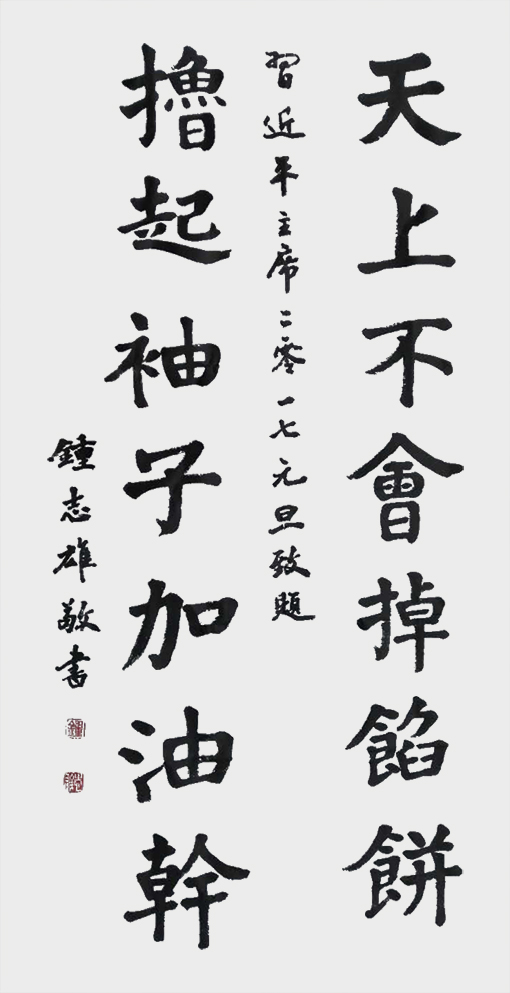 天上不會掉餡餅
習近平主席二零一七元旦致題
擼起袖子加油幹
鍾志雄敬書